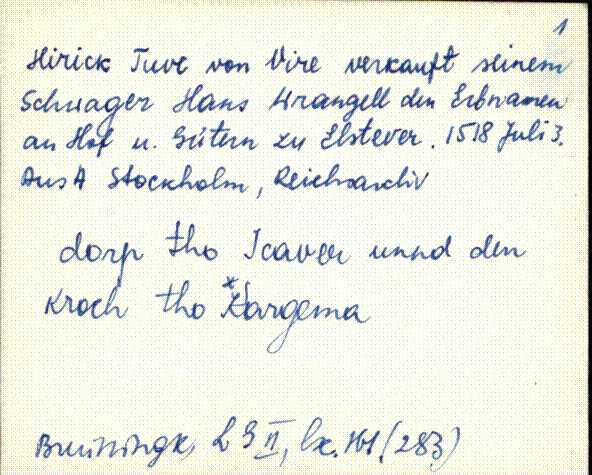 1
Hirick Tuve von Vire verkauft seinem
Schwager Hans Wrangell den Erbnamen
an Hof u. Gütern zu Elstever. 1518 Juli 3.
Aus A Stockholm, Reichsarchiv
dorp tho Icaver unnd den
Kroch tho Kargema
Bruiningk, L G II, (283)